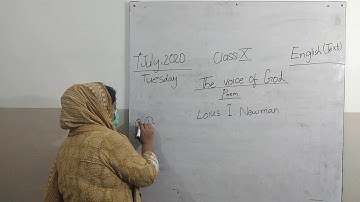 7 July, 2020 Class X English (Text)
Tuesday The voice of God
Poem
Loius I Newman